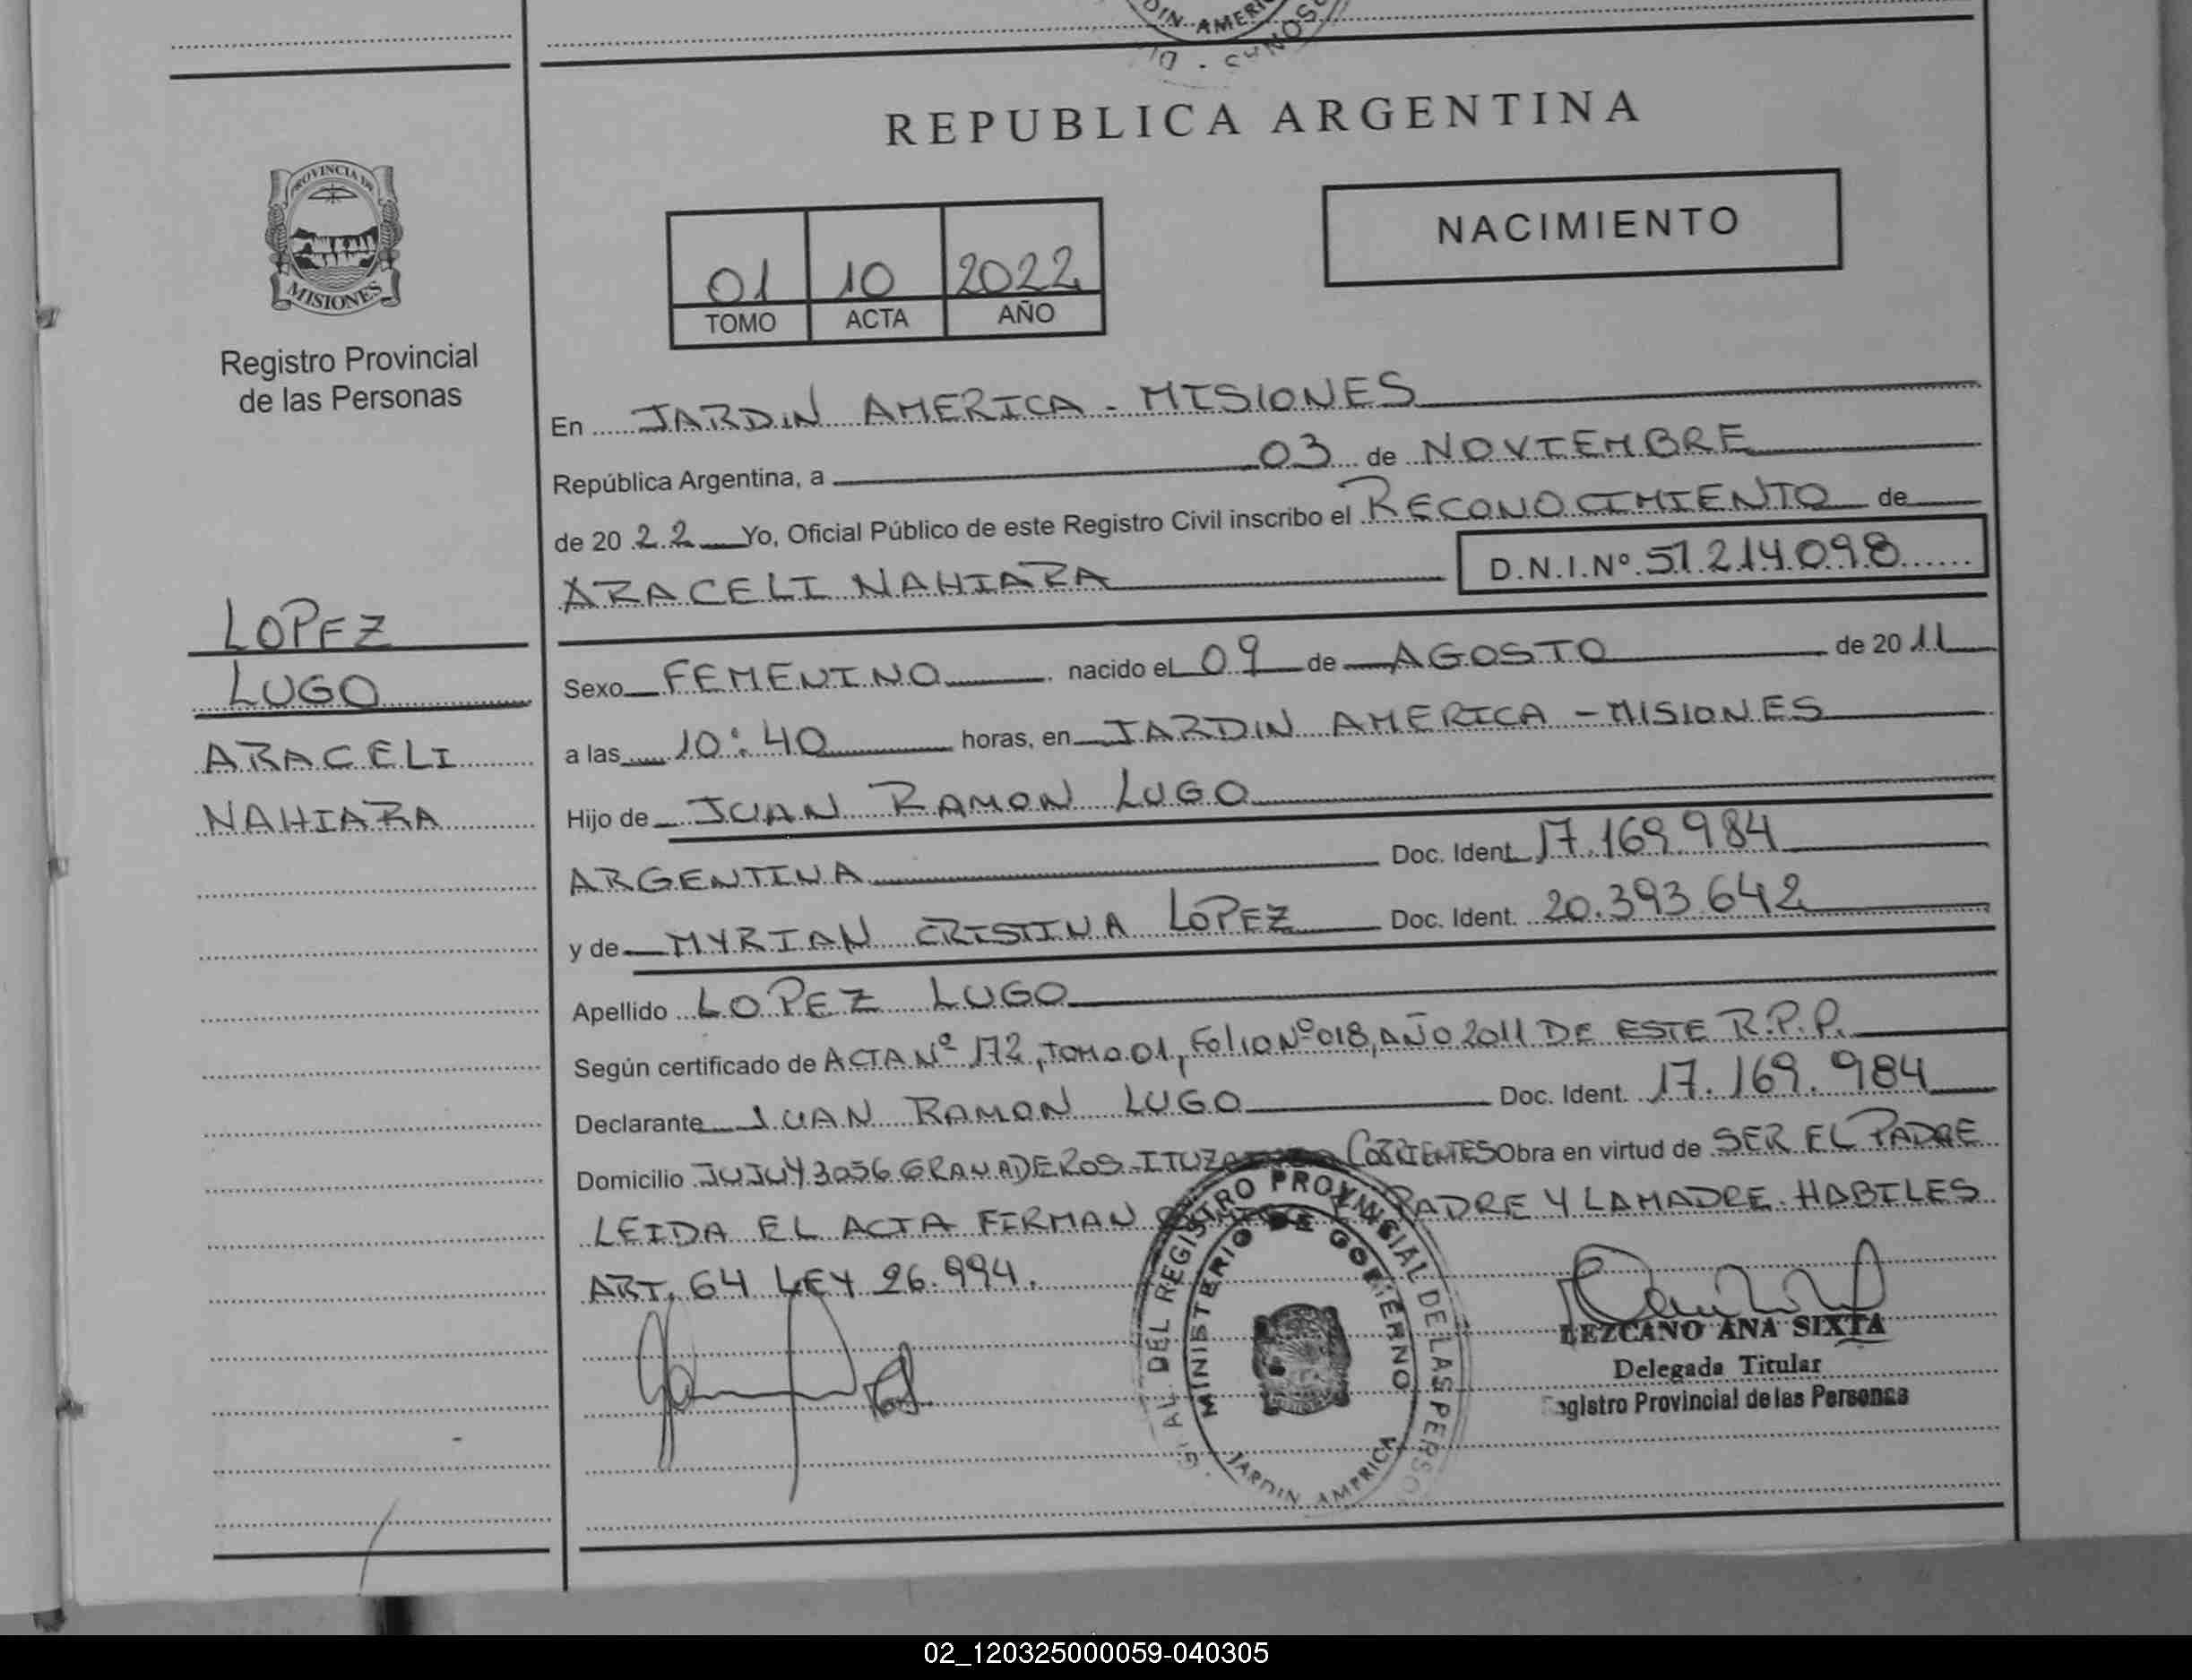 DIN AMERI
REPUBLICA ARGENTINA
PROVINCIA DE
MISIONES
Registro Provincial
de las Personas
NACIMIENTO
01 10 2022
TOMO ACTA AÑO
En JARDIN AMERICA - MISIONES
República Argentina, a 03 de NOVIEMBRE
de 2022 Yo, Oficial Público de este Registro Civil inscribo el RECONOCIMIENTO de
ARACELI NAHIARA D.N.I.Nº 51.214.098
LOPEZ
LUGO
ARACELI
NAHIARA
Sexo FEMENINO nacido el 09 de AGOSTO de 2011
a las 10:40 horas, en JARDIN AMERICA - MISIONES
Hijo de JUAN RAMON LUGO
ARGENTINA Doc. Ident. 17.169.984
y de MYRIAN CRISTINA LOPEZ Doc. Ident. 20.393.642
Apellido LOPEZ LUGO
Según certificado de ACTA Nº 172, TOMO 01, FOLIO Nº 018, AÑO 2011 DE ESTE R.P.P.
Declarante JUAN RAMON LUGO Doc. Ident. 17.169.984
Domicilio JUJUY 3056 GRANADEROS - CORRIENTES Obra en virtud de SER EL PADRE
LEIDA EL ACTA FIRMAN PADRE Y LA MADRE HABILES
ART. 64 LEY 26.994.
REGISTRO PROVINCIAL DE LAS
MINISTERIO DE GOBIERNO
JARDIN AMERICA
LEZCANO ANA SIXTA
Delegada Titular
Registro Provincial de las Personas
02_120325000059-040305